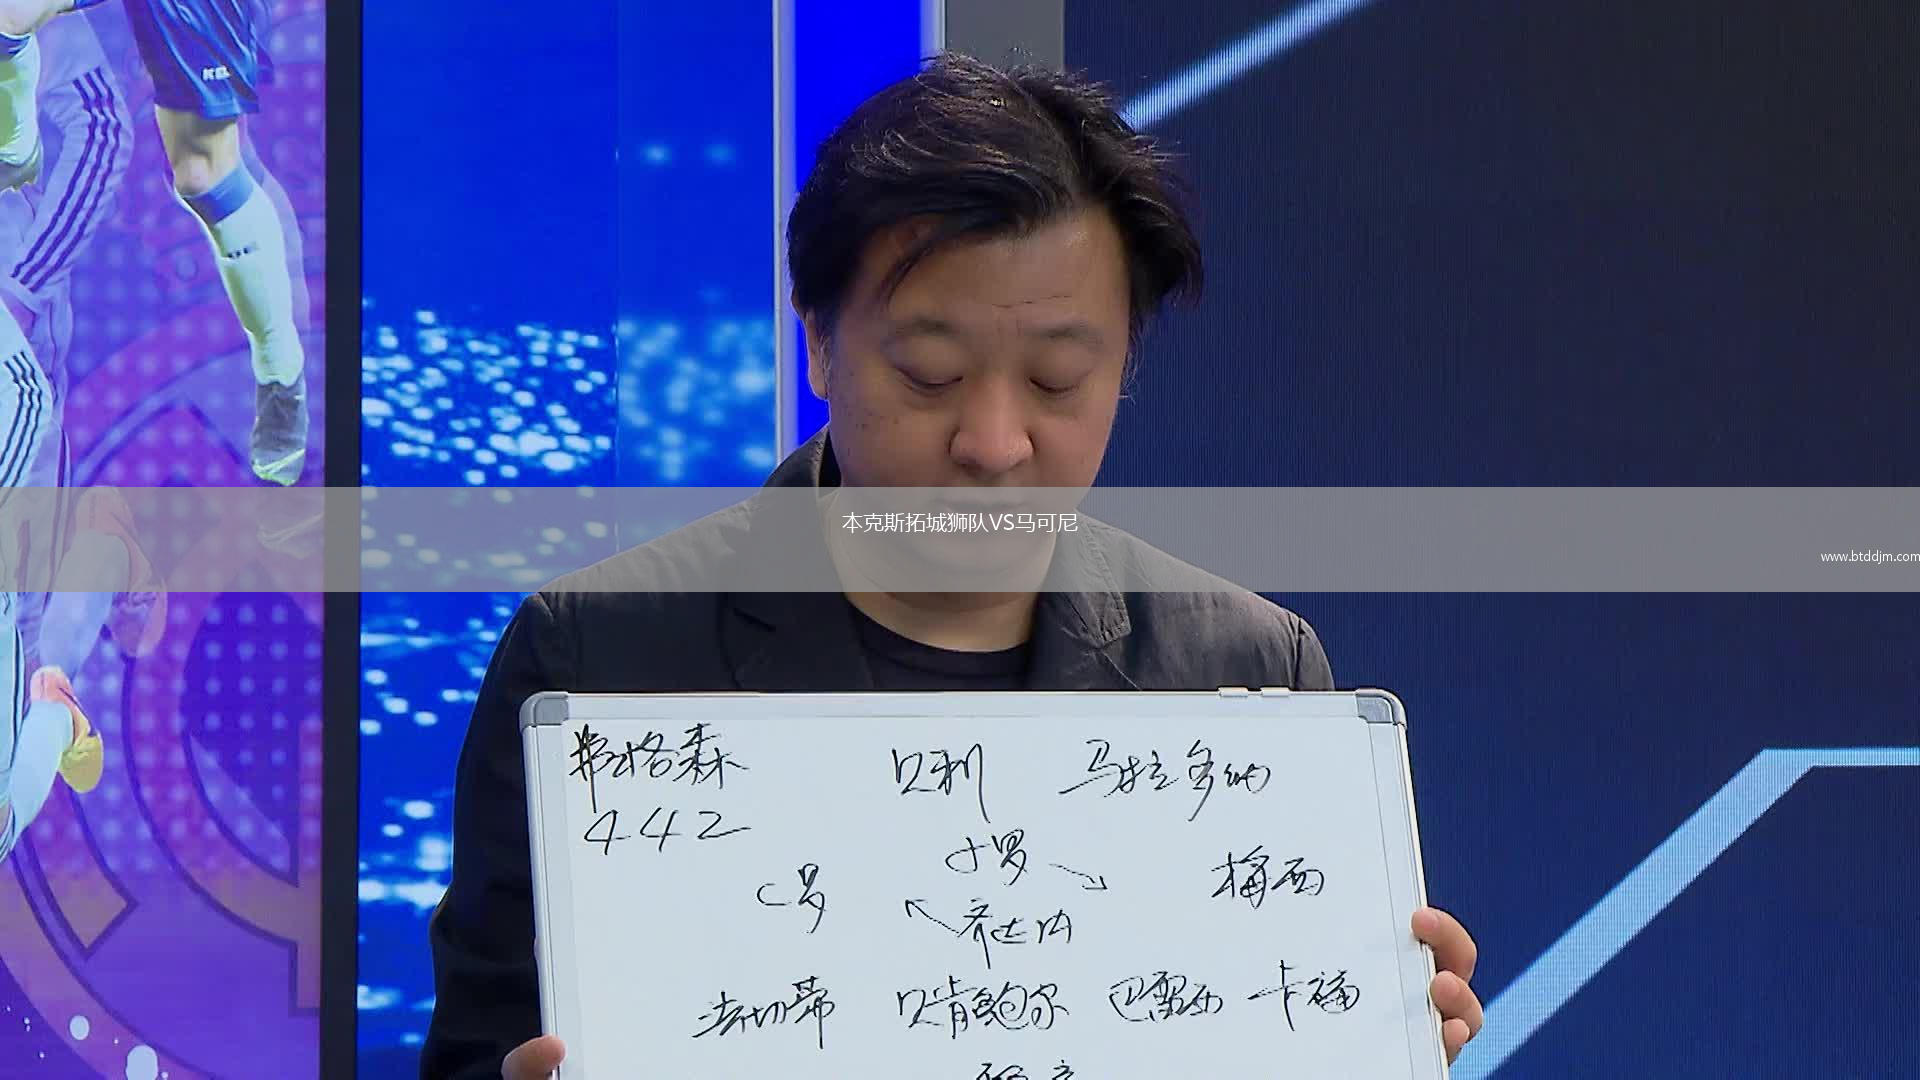 本克斯拓城狮队VS马可尼
www.btddjm.com
弗格森 贝利 马拉多纳
442
小罗
C罗 梅西
齐达内
法切蒂 贝肯鲍尔 巴雷西 卡福